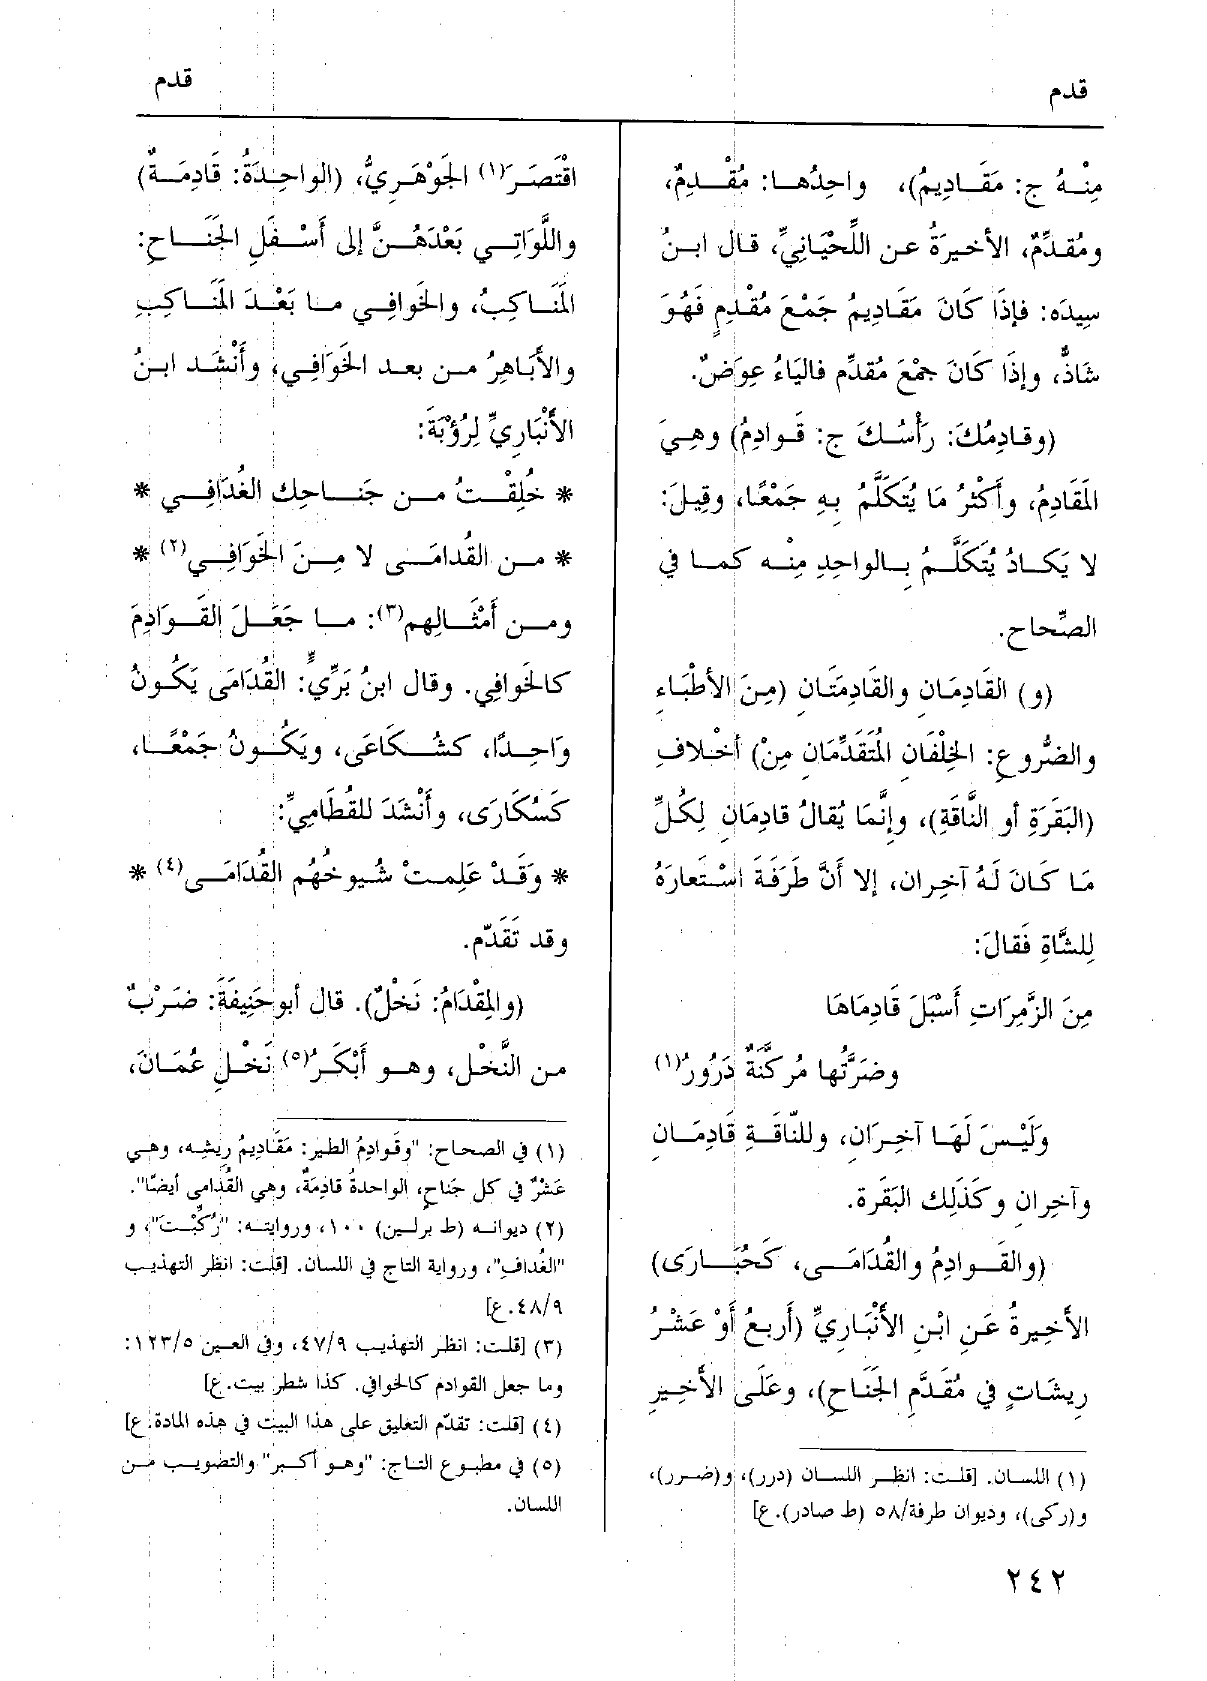 قدم
قدم
مِنْهُ ج: مَقَادِيمُ)، واحِدُها: مُقْدِمٌ،
ومُقدِّمٌ، الأخيرَةُ عن اللِّحْيَانِيِّ، قال ابنُ
سِيدَه: فإذَا كَانَ مَقَادِيمُ جَمْعَ مُقْدِمٍ فَهُوَ
شاذٌّ، وإذَا كَانَ جَمْعَ مُقدِّم فاليَاءُ عِوَضٌ.
(وقادِمُكَ: رَأْسُكَ ج: قَوادِمُ) وهِيَ
المَقَادِمُ، وأَكْثرُ مَا يُتَكَلَّمُ بِهِ جَمْعًا، وقِيلَ:
لا يَكادُ يُتَكَلَّمُ بالواحِدِ مِنْه كما في
الصِّحاح.
(و) القَادِمَانِ والقَادِمَتَانِ (مِنَ الأَطْبَاءِ
والضُّروعِ: الخِلْفَانِ المُتَقَدِّمَان مِنْ) أَخْلافِ
(البَقَرَةِ أو النَّاقَةِ)، وإِنَّمَا يُقالُ قادِمَانِ لِكُلِّ
مَا كَانَ لَهُ آخِران، إلا أَنَّ طَرَفَةَ اسْتَعارَهُ
لِلشَّاةِ فَقالَ:
مِنَ الزَّمِرَاتِ أَسْبَلَ قَادِمَاهَا
وضَرَّتُها مُركَّنَةٌ دَرُورُ(١)
ولَيْسَ لَهَا آخِرَان، وللنَّاقَةِ قَادِمَانِ
وآخِرانِ وكَذَلِك البَقَرة.
(والقَوادِمُ والقُدَامَى، كَحُبَارَى)
الأخِيرةُ عَنِ ابْنِ الأَنْبَارِيِّ (أَربعُ أَوْ عَشْرُ
رِيشَاتٍ في مُقدَّمِ الجَنَاحِ)، وعَلَى الأَخِيرِ
(١) اللسان. [قلت: انظر اللسان (درر)، و(ضرر)،
و(ركى)، وديوان طرفة/٥٨ (ط صادر).ع]
٢٤٢
اقْتَصَرَ(١) الجَوْهَرِيُّ، (الواحِدَةُ: قَادِمَةٌ)
واللَّوَاتِي بَعْدَهُنَّ إلى أَسْفَلِ الجَنَاحِ:
المَنَاكِبُ، والخَوافِي ما بَعْدَ المَنَاكِبِ
والأَبَاهِرُ من بعد الخَوَافِي، وأَنْشَد ابنُ
الأَنْبَارِيِّ لِرُؤْبَةَ:
* خُلِقْتُ من جَنَاحِك الغُدَافِي *
* من القُدامَى لا مِنَ الخَوَافِي(٢) *
ومن أَمْثَالِهم(٣): ما جَعَلَ القَوَادِمَ
كالخَوافِي. وقال ابنُ بَرِّيٍّ: القُدَامَى يَكُونُ
وَاحِدًا، كشُكَاعَى، ويَكُونُ جَمْعًا،
كَسُكارَى، وأَنْشَدَ للقُطَامِيِّ:
* وقَدْ عَلِمتْ شُيوخُهُم القُدَامَى(٤) *
وقد تَقَدّم.
(والمِقْدَامُ: نَخْلٌ). قال أبوحَنِيفَةَ: ضَرْبٌ
من النَّخْل، وهو أَبْكَرُ(٥) نَخْلِ عُمَانَ،
(١) في الصحاح: "وقَوادِمُ الطير: مَقَادِيمُ رِيشِه، وهي
عَشْرٌ في كل جَناحٍ، الواحدةُ قادِمَةٌ، وهي القُدَامى أيضًا".
(٢) ديوانه (ط برلين) ١٠٠، وروايته: "رُكِّبْتَ"، و
"الغُدافِ"، ورواية التاج في اللسان. [قلت: انظر التهذيب
٤٨/٩.ع]
(٣) [قلت: انظر التهذيب ٤٧/٩، وفي العين ١٢٣/٥:
وما جعل القوادم كالخوافي. كذا شطر بيت.ع]
(٤) [قلت: تقدّم التعليق على هذا البيت في هذه المادة.ع]
(٥) في مطبوع التاج: "وهو أكبر" والتصويب من
اللسان.